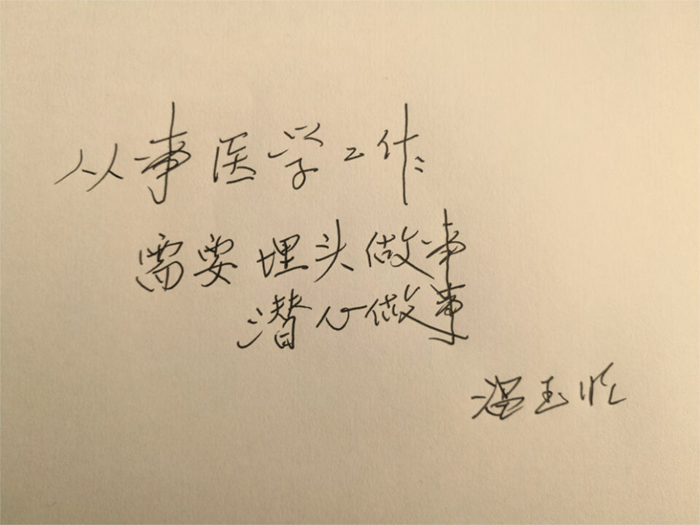 从事医学工作
需要埋头做事
潜心做事
温玉